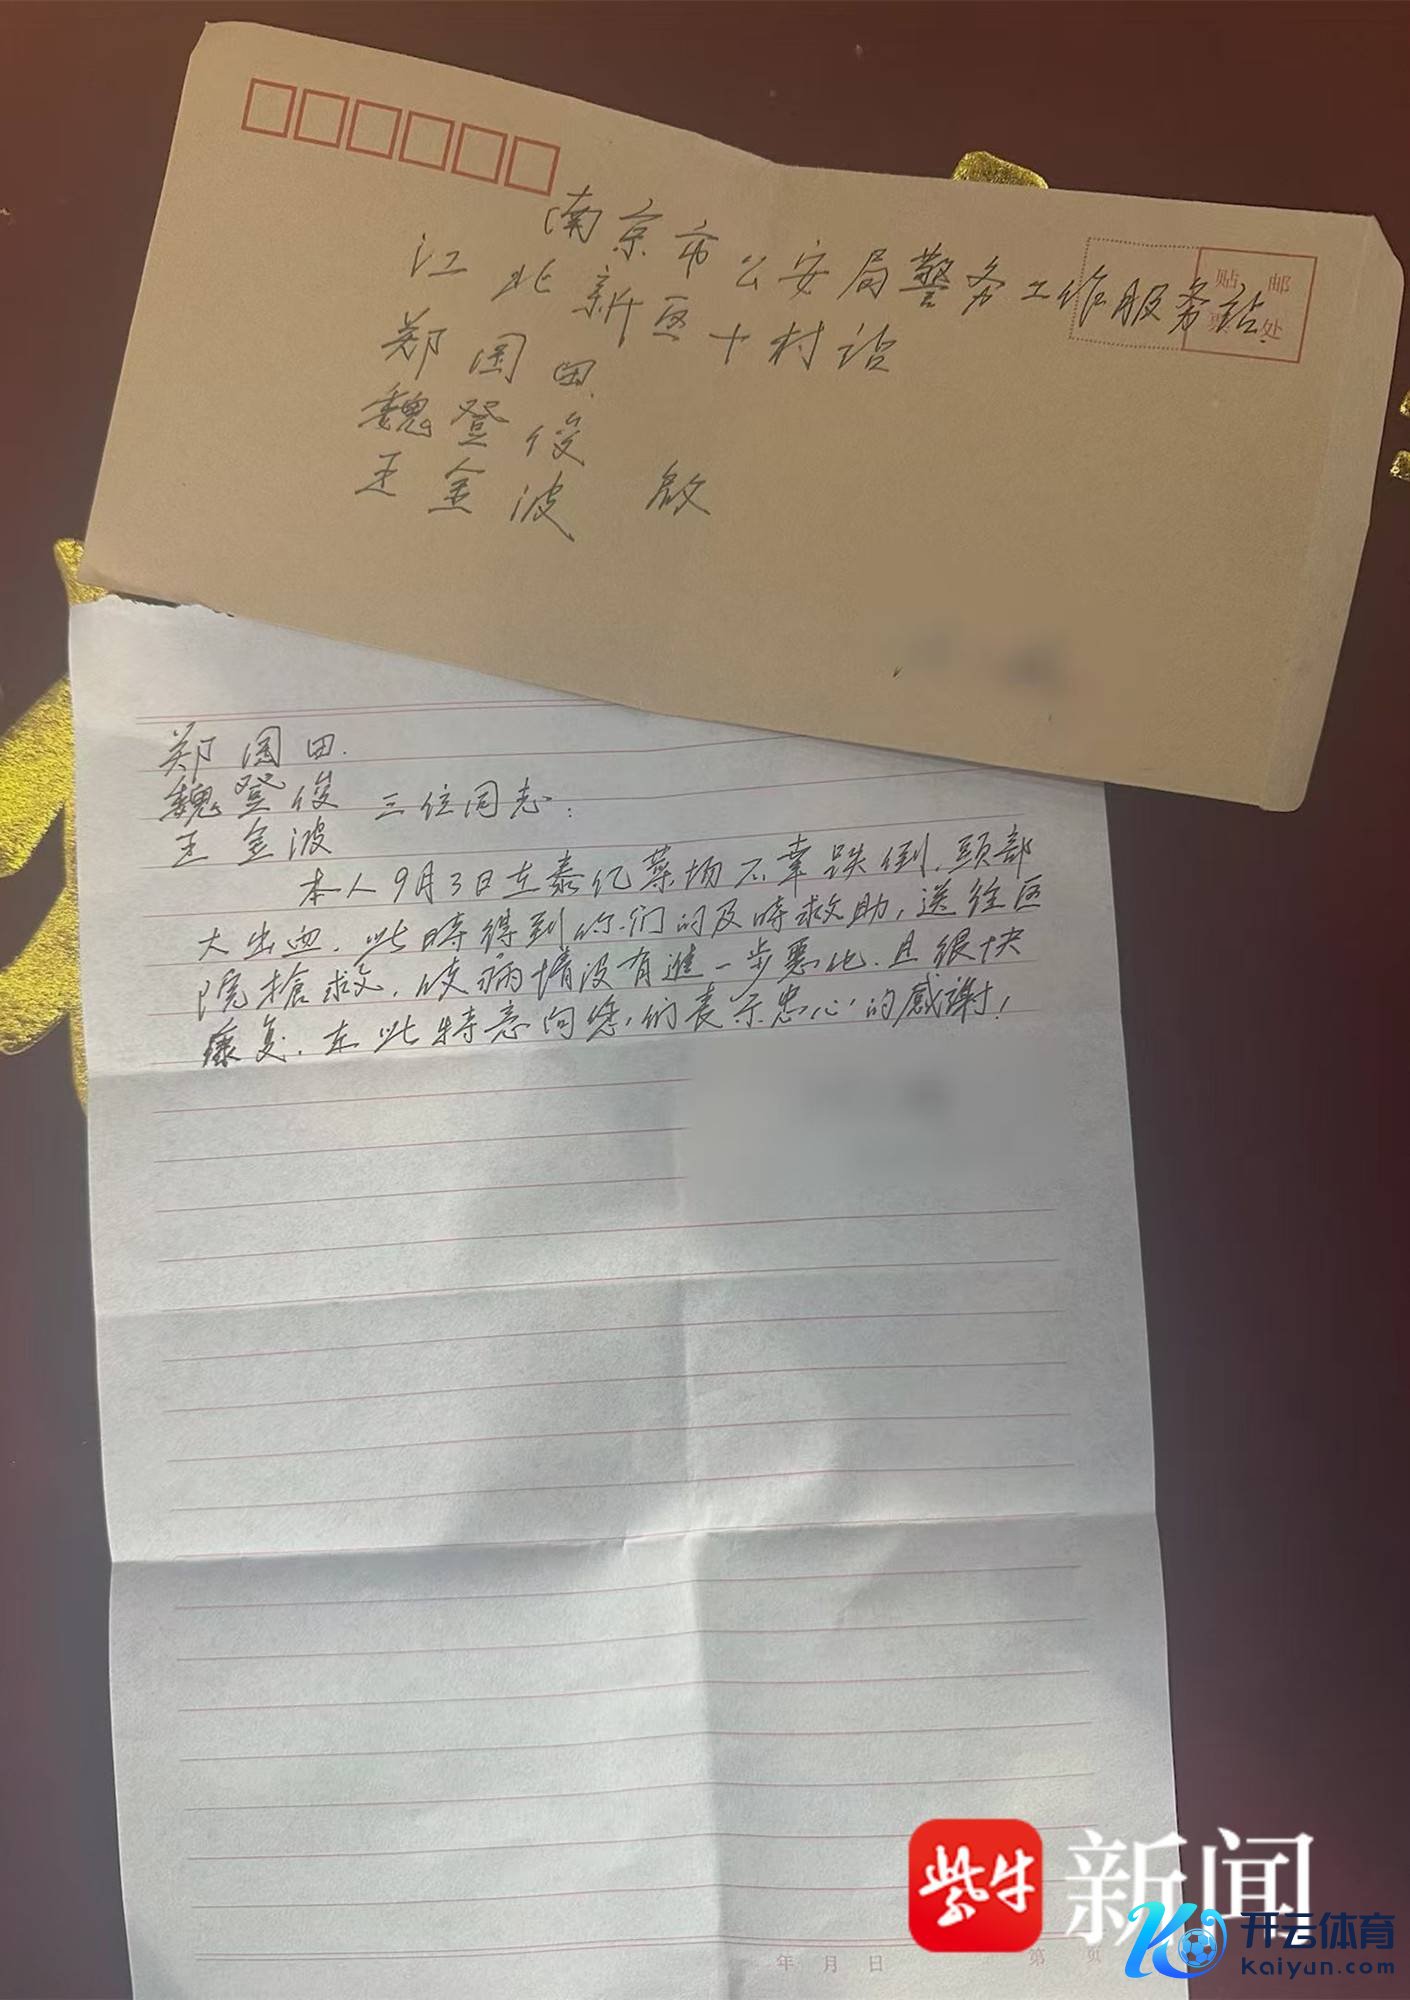 南京市公安局警务工作服务站
贴 邮
票 处
江北新区十村站
郑国田
魏登俊
王金波 啟
郑国田.
魏登俊 三位同志:
王金波
本人9月3日在泰亿菜场不幸跌倒,頭部
大出血,此時得到你们的及時救助,送往医
院搶救,使病情没有進一步惡化.且很快
康复,在此特意向您们表示忠心的感謝!
年 月 日 第 页
紫牛 新闻
开云体育
kaiyun.com